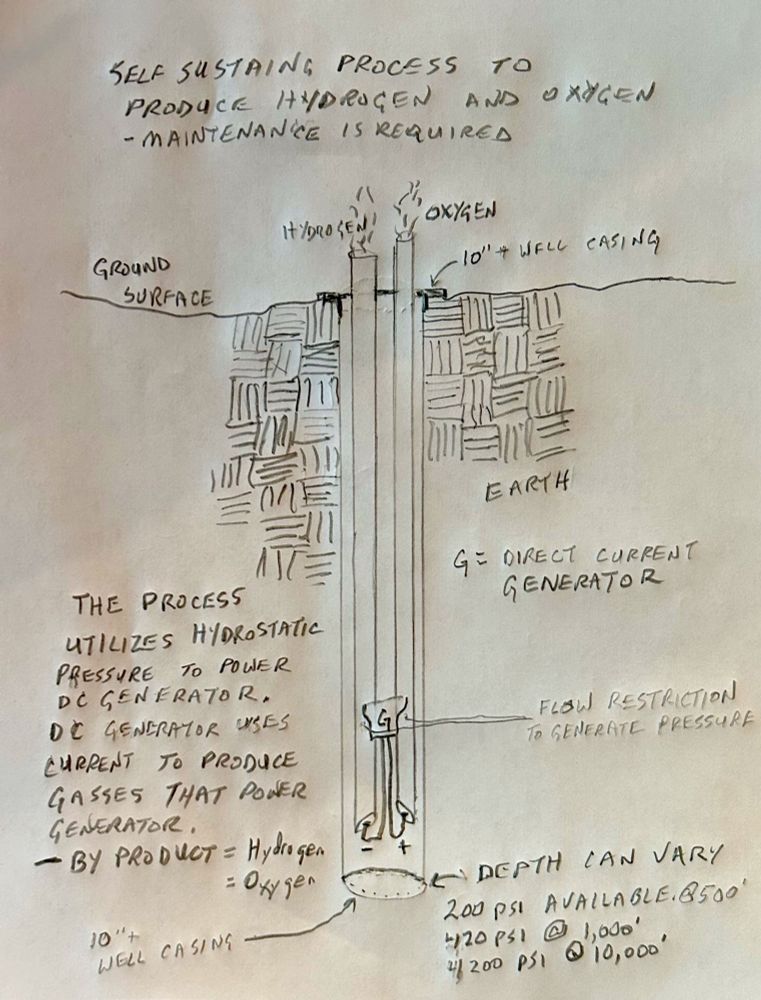 SELF SUSTAING PROCESS TO
PRODUCE HYDROGEN AND OXYGEN
- MAINTENANCE IS REQUIRED
HYDROGEN
OXYGEN
10"+ WELL CASING
GROUND
SURFACE
EARTH
G = DIRECT CURRENT
GENERATOR
THE PROCESS
UTILIZES HYDROSTATIC
PRESSURE TO POWER
DC GENERATOR.
DC GENERATOR USES
CURRENT TO PRODUCE
GASSES THAT POWER
GENERATOR.
- BY PRODUCT = Hydrogen
= Oxygen
G
FLOW RESTRICTION
TO GENERATE PRESSURE
- +
DEPTH CAN VARY
200 PSI AVAILABLE.@500'
420 PSI @ 1,000'
4200 PSI @ 10,000'
10"+
WELL CASING